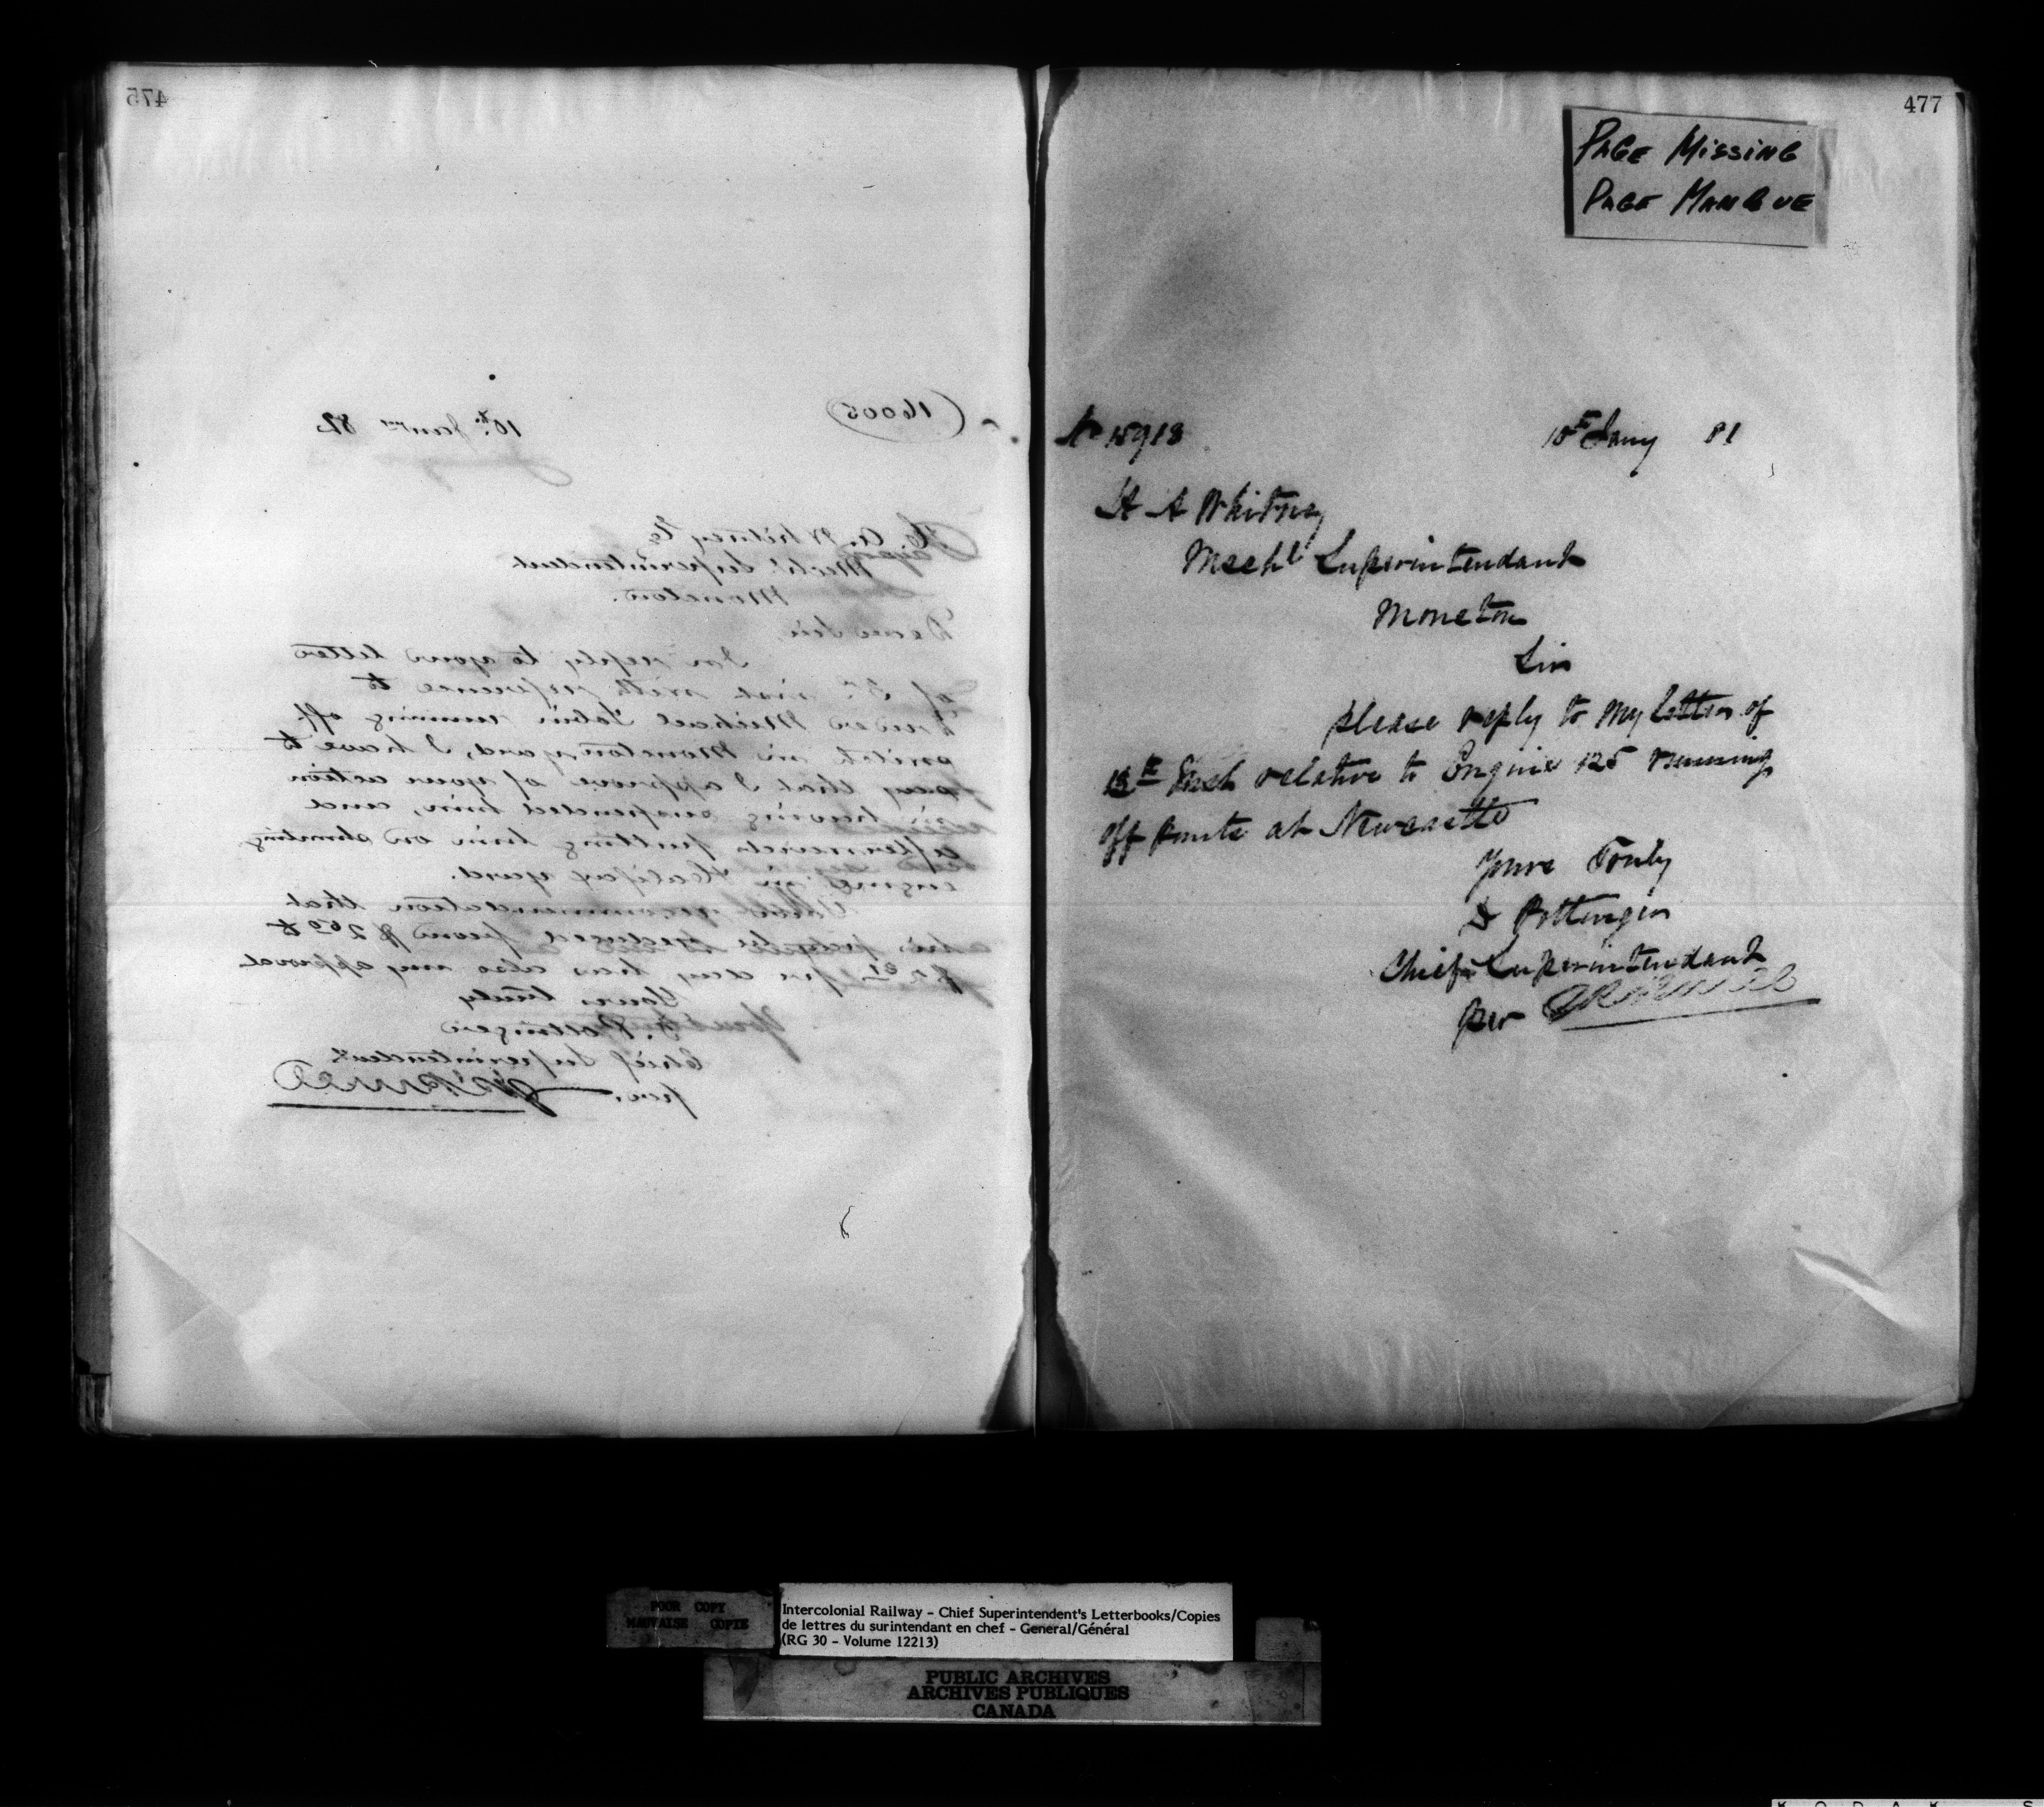 475
(16005)
10th Janry 82
H. A. Whitney Esq
Mechl Superintendent
Moncton.
Dear Sir,
In reply to your letter
of inst with reference to
Driver Michael Tobin running off
switch in Moncton yard, I have to
say that I approve of your action
in having suspended him, and
afterwards putting him on shunting
engine in Halifax yard.
Your recommendation that
his pay be reduced from $2.60 to
per day has also my approval
Yours truly
D. Pottinger
Chief Superintendent
per.
477
PAGE MISSING
PAGE MANQUE
No 15918
10th Jany 81
H A Whitney
Mechl Superintendant
Moncton
Sir
please reply to my letter of
Inst relative to Engine 125 running
off at Newcastle
Yours Truly
D Pottinger
Chief Superintendant
per
POOR COPY
MAUVAISE COPIE
Intercolonial Railway - Chief Superintendent's Letterbooks/Copies
de lettres du surintendant en chef - General/Général
(RG 30 - Volume 12213)
PUBLIC ARCHIVES
ARCHIVES PUBLIQUES
CANADA